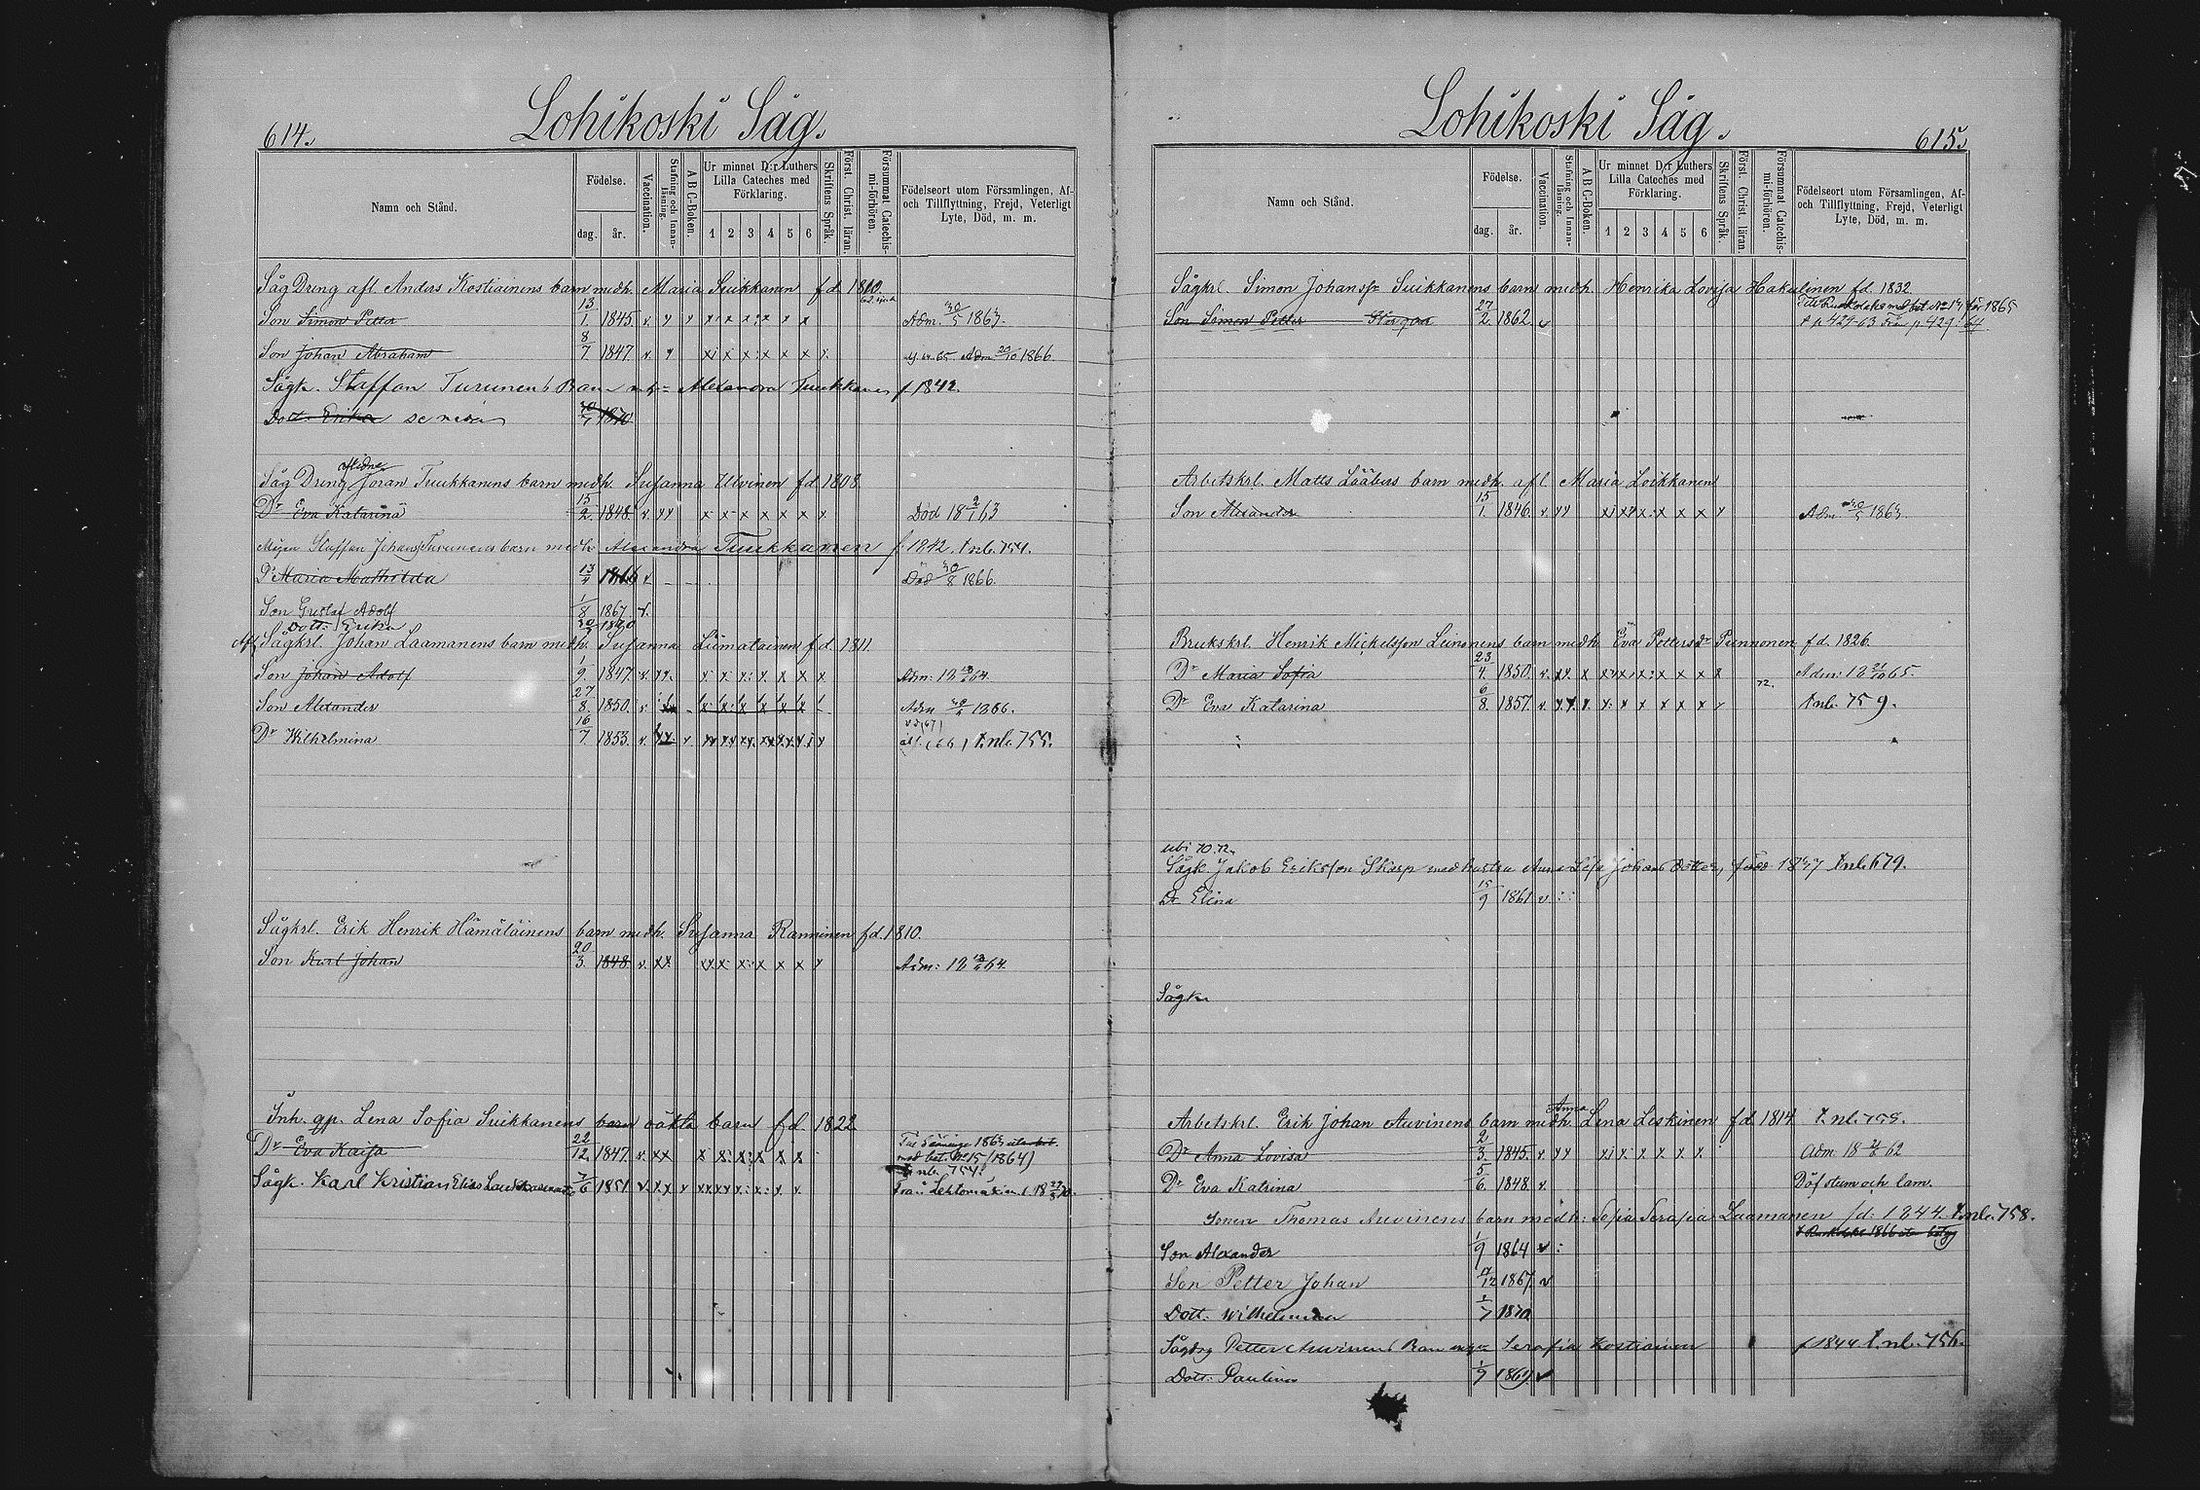 614.
Lohikoski Såg.
Namn och Stånd.
Födelse.
dag.
år.
Vaccination.
Stafning och Innan-läsning.
A B C-Boken.
Ur minnet D:r Luthers
Lilla Cateches med
Förklaring.
1 2 3 4 5 6
Skriftens Språk.
Först. Christ. läran.
Försummat Catechis-mi-förhören.
Födelseort utom Församlingen, Af-
och Tillflyttning, Frejd, Veterligt
Lyte, Död, m. m.
Såg Dreng afl. Anders Kostiainens barn medh. Maria Suikkanen f.d. 1810.
Son Simon Petter 13/1. 1845. v. Adm. 30/5 1863.
Son Johan Abraham 8/7 1847. v. Adm 20/10 1866.
Sågk. Staffan Turunens Barn Alexandra Tuukkanen f 1842.
Dott. Erika se nedan 1870
Såg Dreng aflidne Joran Tuukkanens barn medh. Susanna Ulvinen f.d. 1808.
Dr Eva Katarina 15/2. 1848. v. Död 18 2/1 63
Staffan Johans Turunens barn medh Alexandra Tuukkanen f. 1842. t nb. 754.
Dr Maria Mathilda 13/4 1866 v. Död 30/8 1866.
Son Gustaf Adolf 1/8 1867 v.
Dott. Erika 1870
Afl. Sågkrl. Johan Laamanens barn medh. Susanna Liimatainen f.d. 1811.
Son Johan Adolf 1/9. 1847. v.
Son Alexander 27/8. 1850. v
Dr Wilhelmina 16/7. 1853. v. t. nb. 755.
Sågkrl. Erik Henrik Hämäläinens barn medh. Susanna Ranninen f.d. 1810.
Son Karl Johan 20/3. 1848. v.
Inh. qp. Lena Sofia Suikkanens barn oäkta barn f.d. 1822
Dr Eva Kaisa 22/12. 1847. v.
med bet. No 15 (1864)
nb. 754.
Sågk. Karl Kristian Elias 7/6 1851 v.
615.
Lohikoski Såg.
Namn och Stånd.
Födelse.
dag.
år.
Vaccination.
Stafning och Innan-läsning.
A B C-Boken.
Ur minnet D:r Luthers
Lilla Cateches med
Förklaring.
1 2 3 4 5 6
Skriftens Språk.
Först. Christ. läran.
Försummat Catechis-mi-förhören.
Födelseort utom Församlingen, Af-
och Tillflyttning, Frejd, Veterligt
Lyte, Död, m. m.
Sågkrl. Simon Johanss: Suikkanens barn medh. Henrika Lovisa Hakulinen f.d. 1832
Son Simon Petter 27/2. 1862. v
Arbetskrl. Matts Lääbers barn medh. afl. Maria Loikkanen
Son Alexander 15/1. 1846. v Adm 30/5 1863.
Brukskrl. Henrik Michelsson Leinonens barn medh. Eva Pettersdr Punnonen f.d. 1826.
Dr Maria Sofia 23/4. 1850. v.
Dr Eva Katarina 6/8. 1857. v. 72. t nb. 759.
ubi 70.72.
Sågk. Jakob Eriksson Skarp med hustru Anna Lisa Johans Dotter, född 1837 t nb 679.
Dr Elina 15/9 1861 v
Sågk.
Arbetskrl. Erik Johan Auvinens barn medh Anna Lena Leskinen f.d. 1814 t nb. 758.
Dr Anna Lovisa 2/3. 1845. v.
Dr Eva Katrina 5/6. 1848. v. Döfstum och lam.
Sonen Thomas Auvinens barn medh: Sofia Serafia Laamanen f.d. 1844. t. nb. 758.
Son Alexander 1/9 1864 v
Son Petter Johan 1867. v
Dott. Wilhelmina 1/7 1870
Sågdrg Petter Auvinens Barn Serafia Kostiainen f 1844 t. nb. 756.
Dott. Paulina 1/7 1869. v